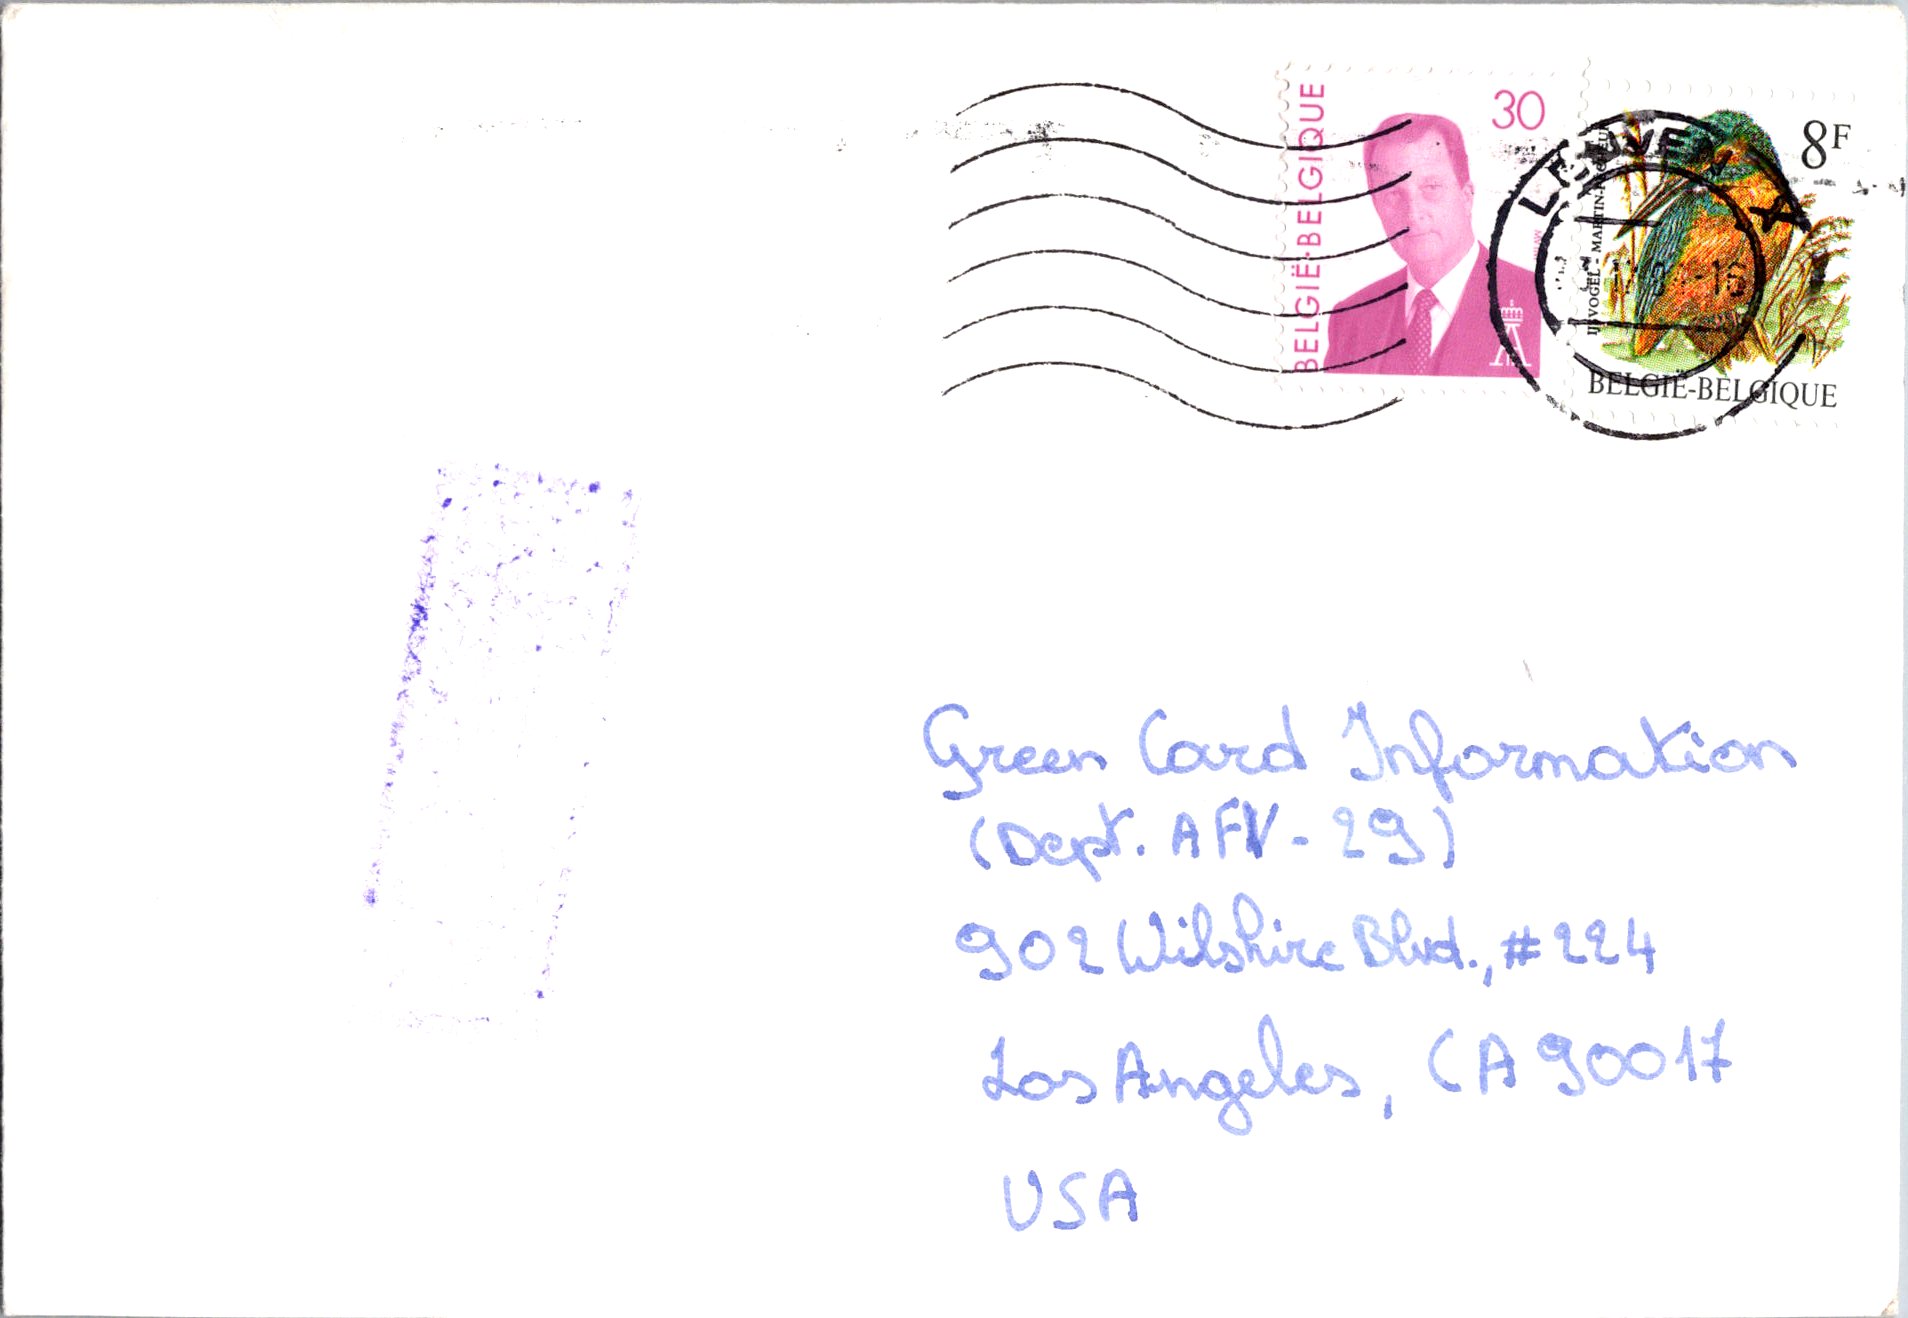 BELGIË-BELGIQUE
30
8F
IJSVOGEL - MARTIN-PÊCHEUR
BELGIË-BELGIQUE
LEUVEN X
Green Card Information
(Dept. AFV-29)
902 Wilshire Blvd., #224
Los Angeles, CA 90017
USA